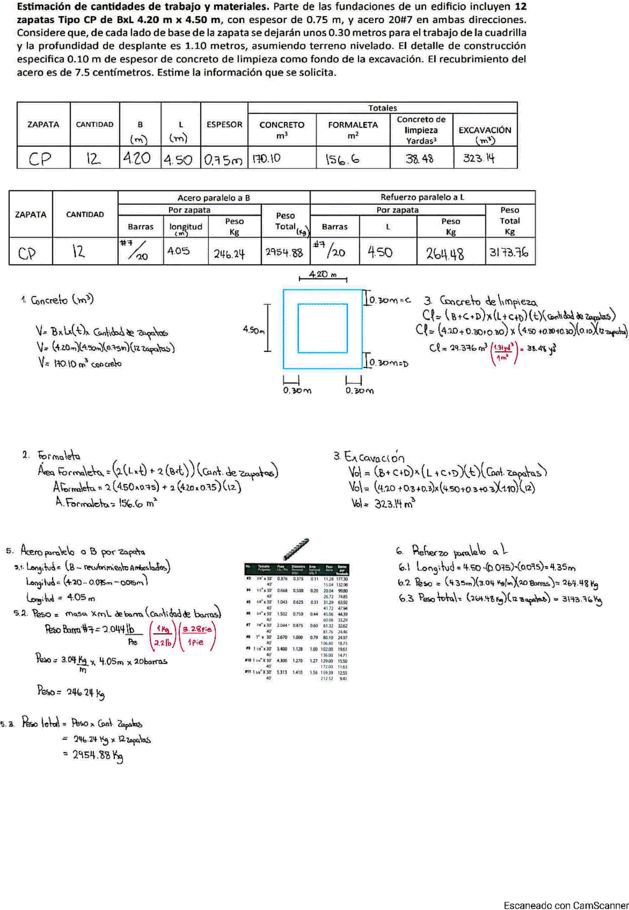 Estimación de cantidades de trabajo y materiales. Parte de las fundaciones de un edificio incluyen 12
zapatas Tipo CP de BxL 4.20 m x 4.50 m, con espesor de 0.75 m, y acero 20#7 en ambas direcciones.
Considere que, de cada lado de base de la zapata se dejarán unos 0.30 metros para el trabajo de la cuadrilla
y la profundidad de desplante es 1.10 metros, asumiendo terreno nivelado. El detalle de construcción
especifica 0.10 m de espesor de concreto de limpieza como fondo de la excavación. El recubrimiento del
acero es de 7.5 centímetros. Estime la información que se solicita.
Totales
ZAPATA CANTIDAD B (m) L (m) ESPESOR CONCRETO m³ FORMALETA m² Concreto de limpieza Yardas³ EXCAVACIÓN (m³)
CP 12 4.20 4.50 0.75m 170.10 156.6 38.48 323.14
Acero paralelo a B Refuerzo paralelo a L
ZAPATA CANTIDAD Por zapata Peso Total (Kg) Por zapata Peso Total Kg
Barras longitud (m) Peso Kg Barras L Peso Kg
CP 12 #7/20 4.05 246.24 2954.88 #7/20 4.50 264.48 3173.76
4.20 m
4.50m
0.30m=C
0.30m=D
0.30m 0.30m
1. Concreto (m³)
V= BxLx(t)x Cantidad de zapatas
V= (4.20m)(4.50m)(0.75m)(12 zapatas)
V= 170.10 m³ concreto
3. Concreto de limpieza
Cl= (B+C+D)x(L+C+D)(t)(Cantidad de zapatas)
Cl= (4.20+0.30+0.30)x(4.50+0.30+0.30)(0.10)(12 zapatas)
Cl= 29.376 m³ (1.31yd³/1m³)= 38.48 y³
2. Formaleta
Área Formaleta = (2(Lxt) + 2(Bxt))(Cant. de zapatas)
A Formaleta = 2(4.50x0.75) + 2(4.20x0.75)(12)
A. Formaleta = 156.6 m²
3. Excavación
Vol= (B+C+D)x(L+C+D)(t)(Cant. zapatas)
Vol= (4.20+0.3+0.3)x(4.50+0.3+0.3)(1.10)(12)
Vol= 323.14 m³
5. Acero paralelo a B por zapata
Longitud= (4.20-0.075m-0.075m)
Longitud = 4.05 m
5.2. Peso = masa x mL de barra (Cantidad de barras)
Peso Barra #7 = 2.044 lb/Pie (1Kg/2.2lb)(3.28Pie/
Peso= 3.04 Kg/m x 4.05m x 20barras
Peso = 246.24 Kg
5.3. Peso total = Peso x Cant. zapatas
= 246.24 Kg x 12 zapatas
= 2954.88 Kg
6. Refuerzo paralelo a L
6.1 Longitud = 4.50-(0.075)-(0.075)=4.35m
6.2 Peso = (4.35m)(3.04 Kg/m)(20 Barras)= 264.48 Kg
6.3 Peso total= (264.48 Kg)(12 zapatas) = 3173.76 Kg
Escaneado con CamScanner